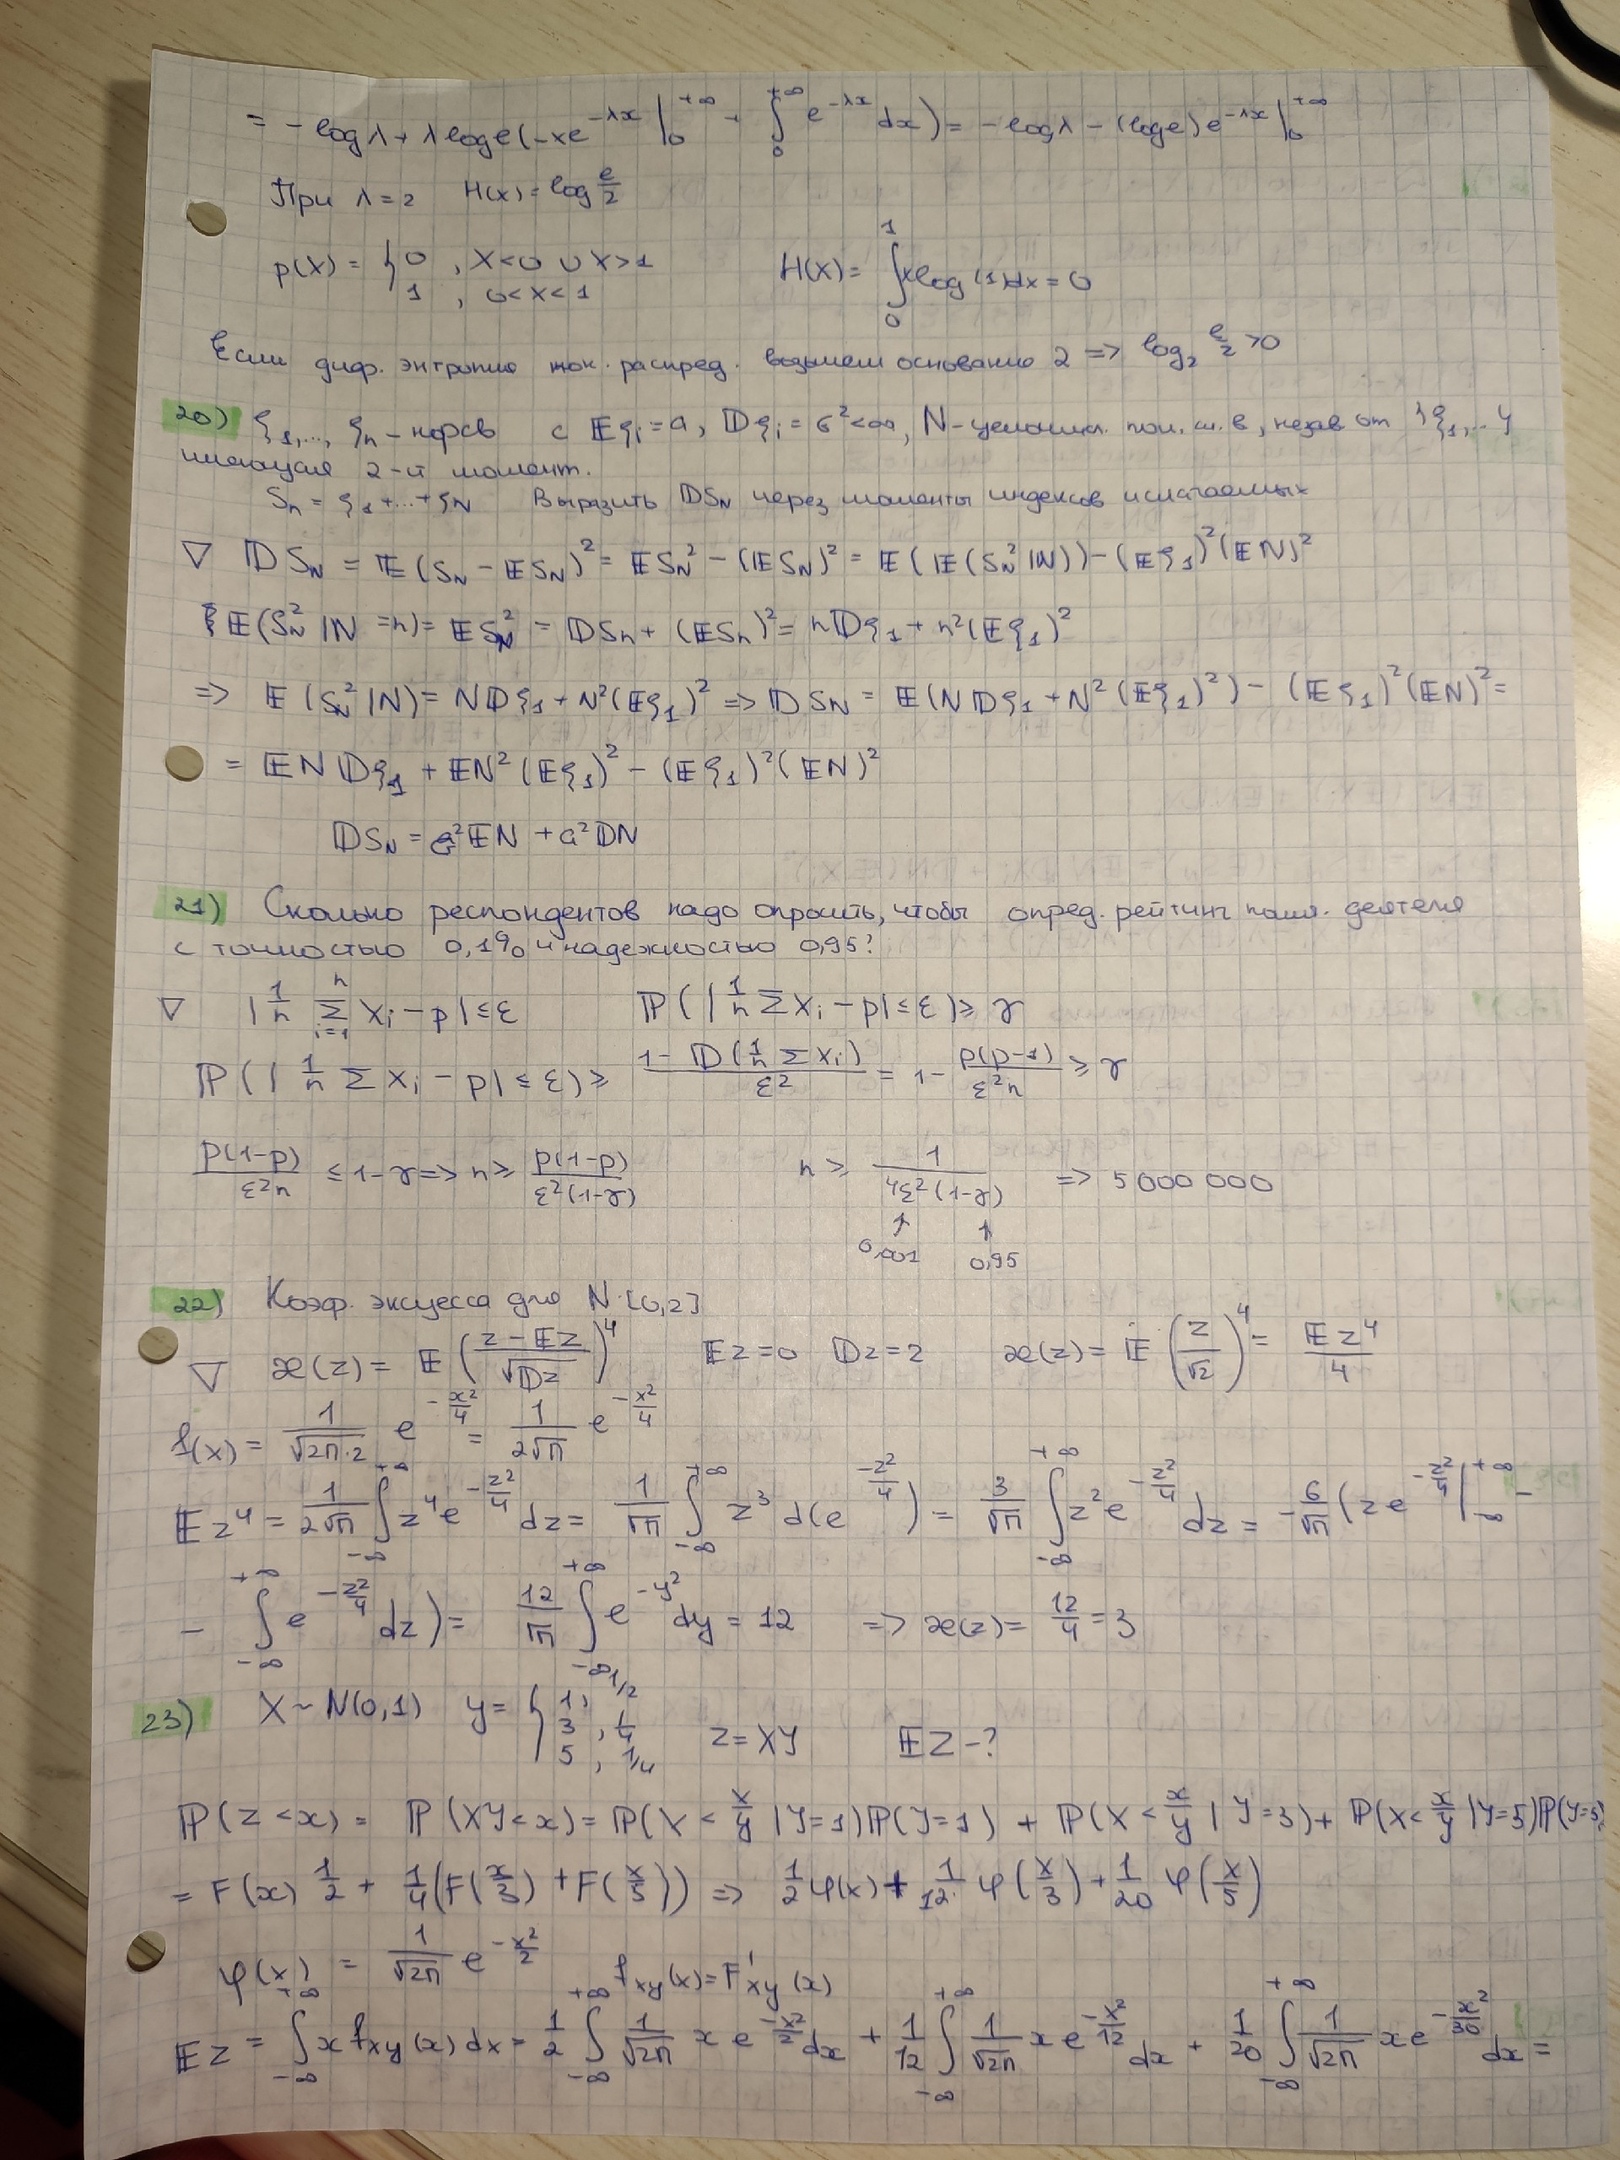 = -logλ + λ loge(-xe^{-λx} |_0^{+∞} + ∫_0^{+∞} e^{-λx} dx) = -logλ - (loge) e^{-λx} |_0^{+∞}
При λ=2 H(x) = log e/2
p(X) = { 0 , X<0 ∪ X>1 ; 1 , 0<X<1 H(X) = ∫_0^1 log(1)dx = 0
Если диф. энтропию пок. распред. возьмем основание 2 => log_2 e/2 >0
20) ξ_1,..., ξ_n - норсв с 𝔼ξ_i = a, 𝔻ξ_i = σ^2<∞, N - целочисл. пол. сл. в, незав от {ξ_1,..}
имеющая 2-й момент.
S_n = ξ_1+...+ξ_N Выразить 𝔻S_N через моменты индексов и слагаемых
▽ 𝔻S_N = 𝔼(S_N - 𝔼S_N)^2 = 𝔼S_N^2 - (𝔼S_N)^2 = 𝔼(𝔼(S_N^2|N)) - (𝔼ξ_1)^2(𝔼N)^2
𝔼(S_N^2|N=n) = 𝔼S_N^2 = 𝔻S_n + (𝔼S_n)^2 = n𝔻ξ_1 + n^2(𝔼ξ_1)^2
=> 𝔼(S_N^2|N) = N𝔻ξ_1 + N^2(𝔼ξ_1)^2 => 𝔻S_N = 𝔼(N𝔻ξ_1 + N^2(𝔼ξ_1)^2) - (𝔼ξ_1)^2(𝔼N)^2 =
= 𝔼N 𝔻ξ_1 + 𝔼N^2(𝔼ξ_1)^2 - (𝔼ξ_1)^2(𝔼N)^2
𝔻S_N = σ^2𝔼N + a^2𝔻N
21) Сколько респондентов надо опросить, чтобы опред. рейтинг полит. деятеля
с точностью 0,1% и надежностью 0,95?
▽ |1/n Σ_{i=1}^n X_i - p| ≤ ε ℙ(|1/n Σ X_i - p| ≤ ε) ≥ γ
ℙ(|1/n Σ X_i - p| ≤ ε) ≥ (1 - 𝔻(1/n Σ X_i))/ε^2 = 1 - p(p-1)/(ε^2 n) ≥ γ
p(1-p)/(ε^2 n) ≤ 1-γ => n ≥ p(1-p)/(ε^2(1-γ)) n ≥ 1/(4ε^2(1-γ)) => 5 000 000
↑ ↑
0,001 0,95
22) Коэф. эксцесса для N[0,2]
▽ æ(z) = 𝔼((z-𝔼z)/√𝔻z)^4 𝔼z=0 𝔻z=2 æ(z) = 𝔼(z/√2)^4 = 𝔼z^4/4
f(x) = 1/√(2π·2) e^{-x^2/4} = 1/(2√π) e^{-x^2/4}
𝔼z^4 = 1/(2√π) ∫_{-∞}^{+∞} z^4 e^{-z^2/4} dz = 1/√π ∫_{-∞}^{+∞} z^3 d(e^{-z^2/4}) = 3/√π ∫_{-∞}^{+∞} z^2 e^{-z^2/4} dz = -6/√π (z e^{-z^2/4} |_{-∞}^{+∞} -
- ∫_{-∞}^{+∞} e^{-z^2/4} dz) = 12/√π ∫_{-∞}^{+∞} e^{-y^2} dy = 12 => æ(z) = 12/4 = 3
23) X~N(0,1) y = { 1, 1/2 ; 3, 1/4 ; 5, 1/4 z = XY 𝔼Z-?
ℙ(Z<x) = ℙ(XY<x) = ℙ(X < x/y | Y=1)ℙ(Y=1) + ℙ(X < x/y | Y=3) + ℙ(X < x/y | Y=5)ℙ(Y=5)
= F(x) 1/2 + 1/4(F(x/3) + F(x/5)) => 1/2 φ(x) + 1/12 φ(x/3) + 1/20 φ(x/5)
φ(x) = 1/√2π e^{-x^2/2} f_{xy}(x) = F'_{xy}(x)
𝔼z = ∫_{-∞}^{+∞} x f_{xy}(x) dx = 1/2 ∫_{-∞}^{+∞} 1/√2π x e^{-x^2/2} dx + 1/12 ∫_{-∞}^{+∞} 1/√2π x e^{-x^2/12} dx + 1/20 ∫_{-∞}^{+∞} 1/√2π x e^{-x^2/30} dx =